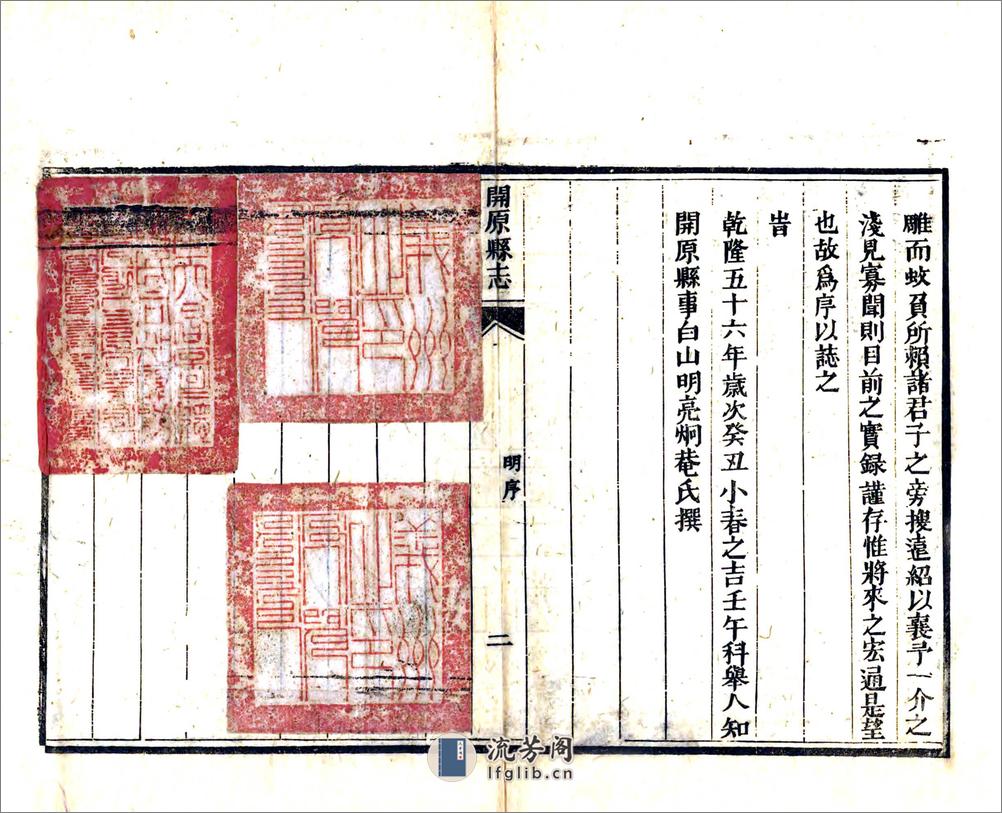 雕而蚊負所賴諸君子之旁搜遠紹以襄予一介之
淺見寡聞則目前之實錄謹存惟將來之宏通是望
也故爲序以誌之
旹
乾隆五十六年歲次癸丑小春之吉壬午科舉人知
開原縣事白山明亮炯菴氏撰
開原縣志
明序
二
義州
之印
義州
之印
流芳阁
lfglib.cn